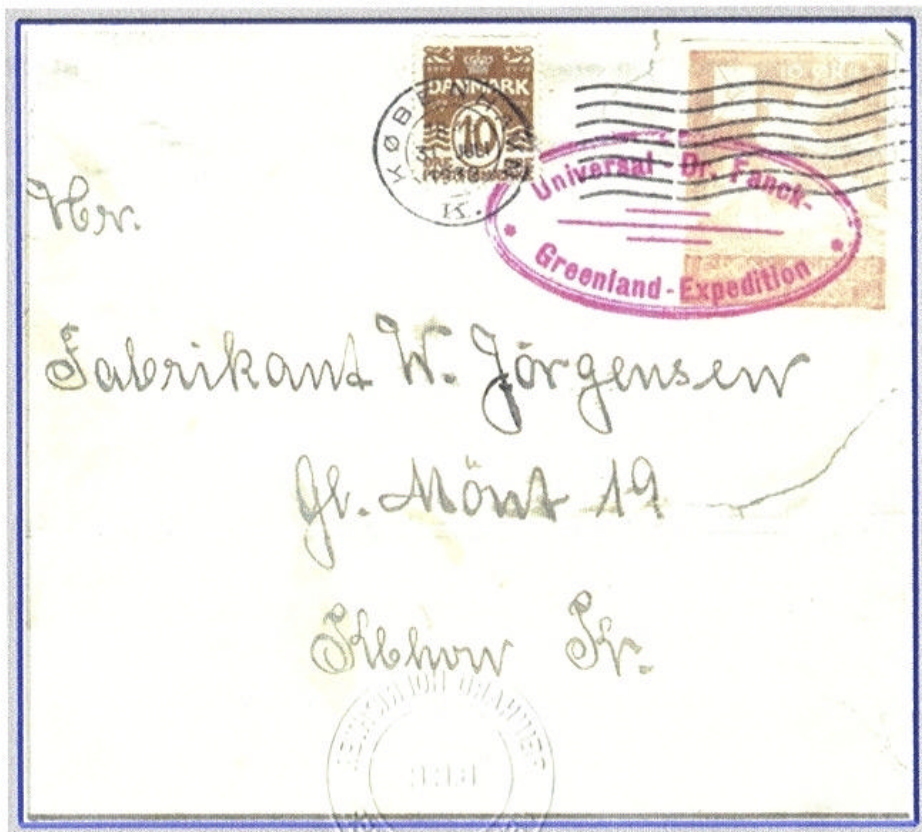 DANMARK
10
KØBENHAVN
K.
Universal - Dr. Fanck-
Greenland - Expedition
Hr.
Fabrikant W. Jörgensen
Gl. Mönt 19
Kbhvn K.